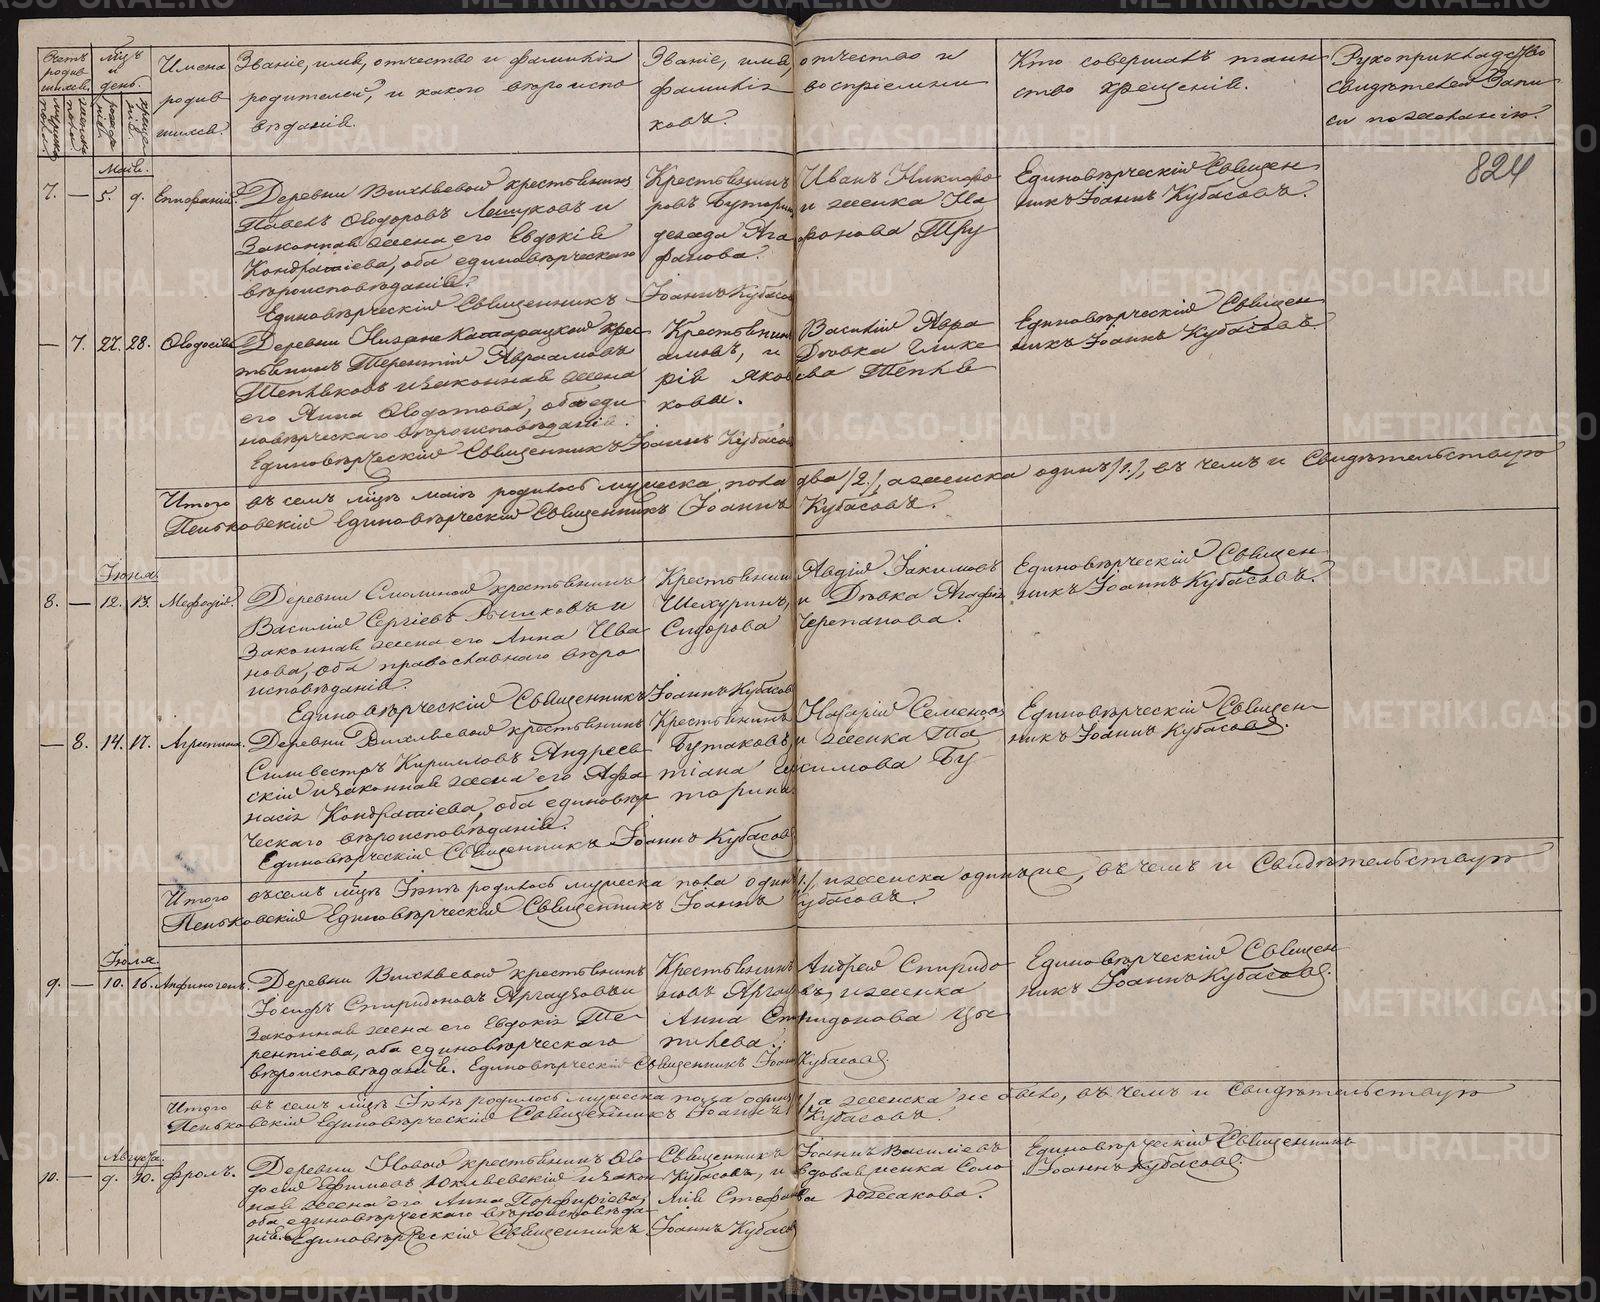 Счетъ родив шихся.
мѣц. и день.
Имена родив шихся.
Званіе, имя, отчество и фамилія
родителей, и какого вѣроиспо
вѣданія.
Званіе, имя, отчество и
фамилія воспріемни
ковъ.
Кто совершалъ таин
ство крещенія.
Рукоприкладство
свидѣтелей запи
си по желанію.
824
Маія.
7. — 5. 9. Епифаній.
Деревни Вихляевой крестьянинъ
Павелъ Ѳеодоровъ и
Законная жена его Евдокія
Кондратіева, оба единовѣрческаго
вѣроисповѣданія.
Единовѣрческій Священникъ Іоаннъ Кубасовъ
Крестьянинъ Иванъ Никифо
ровъ и женка На
фанова.
Единовѣрческій Священ
никъ Іоаннъ Кубасовъ.
— 7. 27. 28. Ѳеодосія
Деревни крес
тьянинъ Терентій Авраамовъ
Тепляковъ и законная жена
его Анна Ѳеодотова, оба еди
новѣрческаго вѣроисповѣданія.
Единовѣрческій Священникъ Іоаннъ Кубасовъ
Крестьянинъ Василій Авра
амовъ, и Дѣвка Глике
рія Яковлева Тепля
ковы.
Единовѣрческій Священ
никъ Іоаннъ Кубасовъ.
Итого въ семъ мѣцѣ маіѣ родилось мужеска пола два /2./, а женска одинъ /1./, въ чемъ и Свидѣтельствую
Пеньковскій Единовѣрческій Священникъ Іоаннъ Кубасовъ.
Іюня.
8. — 12. 13. Меѳодій.
Деревни крестьянинъ
Василій Сергіевъ и
Законная жена его Анна Ива
нова, оба православнаго вѣро
исповѣданія.
Единовѣрческій Священникъ Іоаннъ Кубасовъ
Крестьянинъ Авдій Іакимовъ
и Дѣвка Агафія
Сидорова Черепанова.
Единовѣрческій Священ
никъ Іоаннъ Кубасовъ.
— 8. 14. 17. Агрипина.
Деревни Вихляевой крестьянинъ
Силивестръ Кирилловъ Андреев
скій и законная жена его Афа
насія Кондратіева, оба единовѣр
ческаго вѣроисповѣданія.
Единовѣрческій Священникъ Іоаннъ Кубасовъ
Крестьянинъ Назарій Семеновъ
Бутаковъ и женка Та
тіана Бу
торина
Единовѣрческій Священ
никъ Іоаннъ Кубасовъ.
Итого въ семъ мѣцѣ Іюнѣ родилось мужеска пола одинъ /1./, и женска одинъ же, въ чемъ и Свидѣтельствую
Пеньковскій Единовѣрческій Священникъ Іоаннъ Кубасовъ.
Іюля.
9. — 10. 16. Анфиногенъ.
Деревни Вихляевой крестьянинъ
Іосифъ Спиридоновъ и
Законная жена его Евдокія Те
рентіева, оба единовѣрческаго
вѣроисповѣданія. Единовѣрческій Священникъ Іоаннъ Кубасовъ.
Крестьянинъ Андрей Спиридо
новъ и женка
Анна Спиридонова
Единовѣрческій Священ
никъ Іоаннъ Кубасовъ.
Итого въ семъ мѣцѣ Іюлѣ родилось мужеска пола одинъ /1./, а женска не было, въ чемъ и Свидѣтельствую
Пеньковскій Единовѣрческій Священникъ Іоаннъ Кубасовъ.
Августа.
10. — 9. 10. Фролъ.
Деревни Новой крестьянинъ Ѳео
досій Ефимовъ и закон
ная жена его Анна Порфиріева,
оба единовѣрческаго вѣроисповѣда
нія. Единовѣрческій Священникъ Іоаннъ Кубасовъ
Священникъ Іоаннъ Васильевъ
Кубасовъ, и вдовая женка Соло
мія Стефанова
Единовѣрческій Священникъ
Іоаннъ Кубасовъ.
METRIKI.GASO-URAL.RU